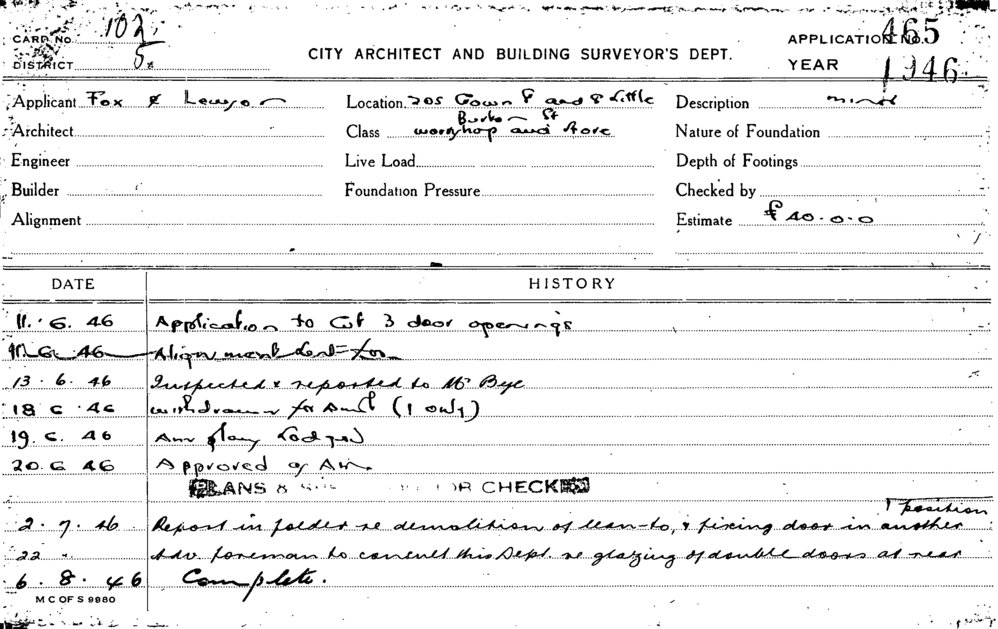 CARD No. 102
DISTRICT
CITY ARCHITECT AND BUILDING SURVEYOR'S DEPT.
APPLICATION No. 465
YEAR 1946
Applicant Fox &
Location 205 Gown P and 8 Little
Burton St
Description minor
Architect
Class workshop and store
Nature of Foundation
Engineer
Live Load
Depth of Footings
Builder
Foundation Pressure
Checked by
Alignment
Estimate £40.0.0
DATE
HISTORY
11.6.46 Application to Cut 3 door openings
11.6.46 Alignment
13.6.46 Inspected & reported to Mr Bye
18.6.46 withdrawn for Amdt (1 only)
19.6.46 Am plans Lodged
20.6.46 Approved as Am.
PLANS & FOR CHECKED
2.7.46 Report in folder re demolition of lean-to, & fixing door in another
position
22 " Adv. foreman to consult this Dept. re glazing of double doors at rear
6.8.46 Complete.
M C OF S 9980